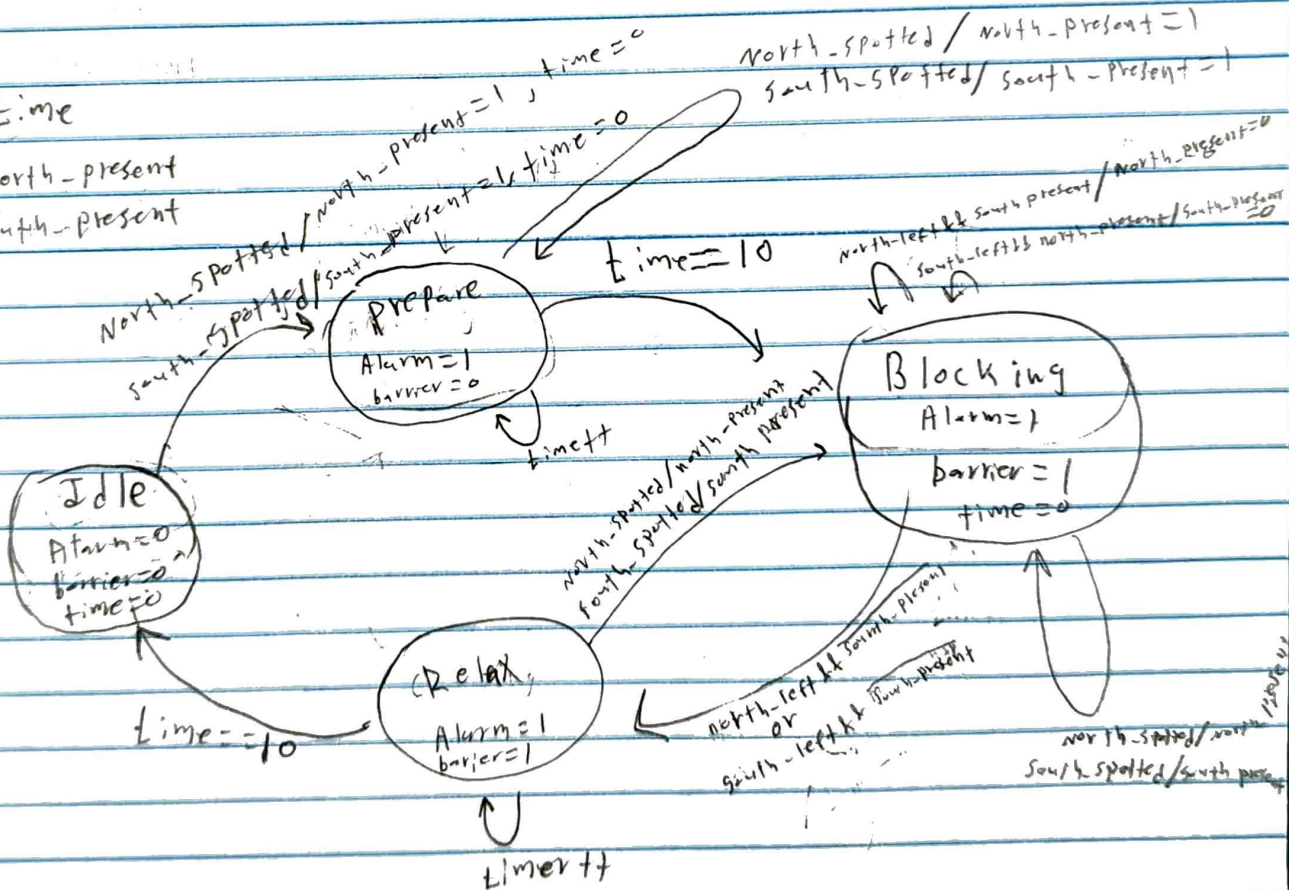 time
orth-present
uth-present
North-spotted/North-present=1, time=0
south-spotted/south-present=1, time=0
North-spotted/North-present=1
south-spotted/south-present=1
time==10
North-left&& south present/North-present=0
south-left&& north-present/south-present
=0
prepare
Alarm=1
barrier=0
time++
Blocking
Alarm=1
barrier=1
time=0
Idle
Alarm=0
barrier=0
time=0
North-spotted/north-present
south-spotted/south present
Relax
Alarm=1
barrier=1
north-left&& south-present
or
south-left&& south-present
time==10
north-spotted/north present
south-spotted/south present
timer++